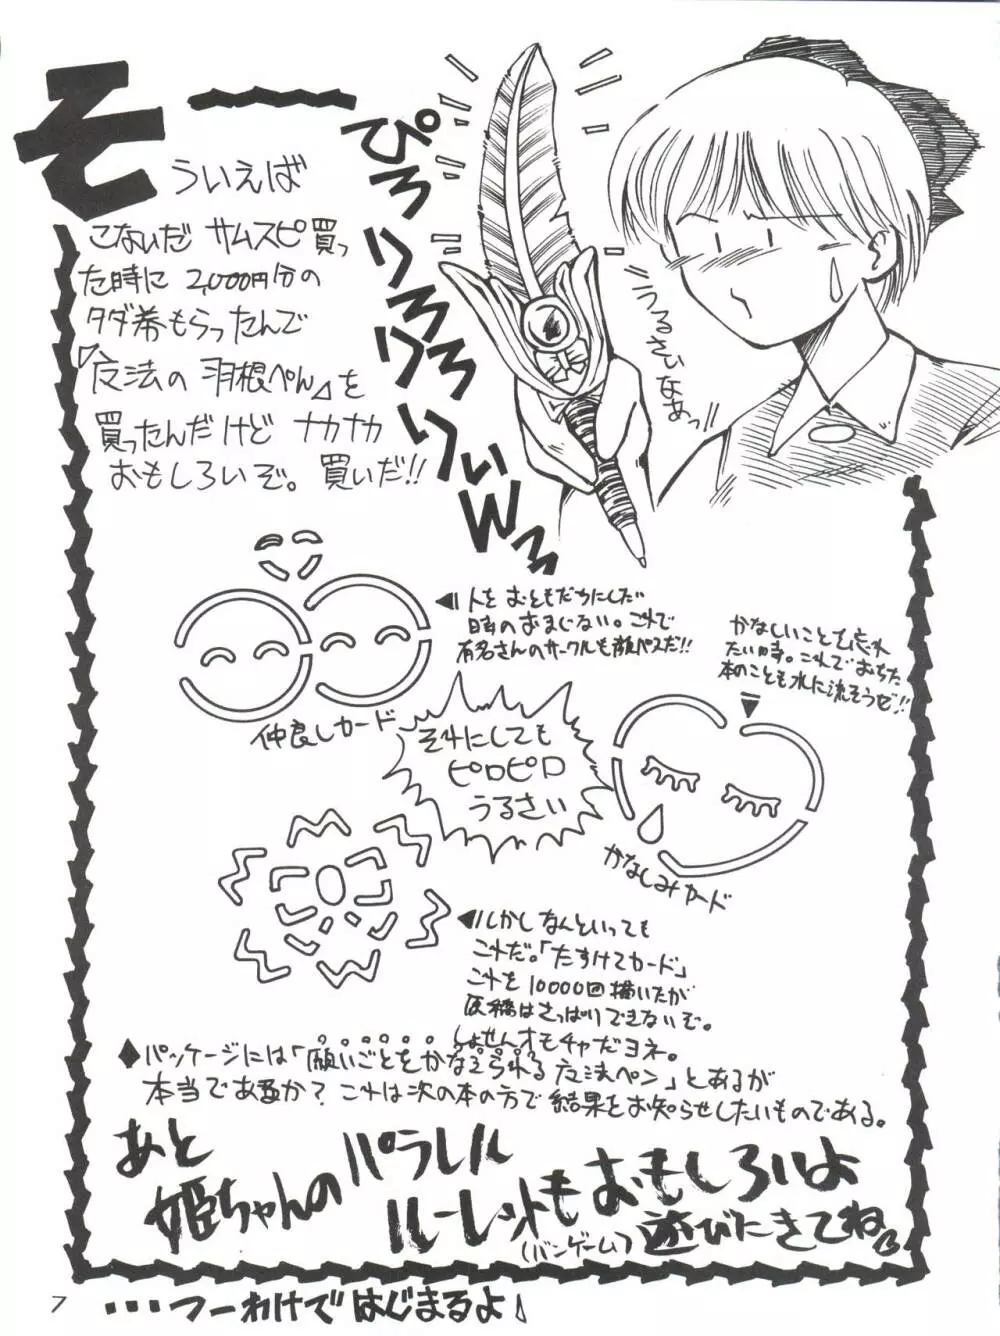 そーういえば
こないだ サムスピ買っ
た時に 2,000円分の
タダ券もらったんで
「魔法の羽根ぺん」を
買ったんだけど ナカナカ
おもしろいぞ。買いだ!!
ぴろりろりろりろりぃWろ
うるさいなぁっ!!
人をおともだちにしたい
時のおまじない。これで
有名さんのサークルも顔パスだ!!
仲良しカード
かなしいことを忘れ
たい時。これでおちた
本のことも水に流そうぜ!!
かなしみカード
それにしても
ピロピロ
うるさい
しかしなんといっても
これだ。「たすけてカード」
これを10000回描いたが
原稿はさっぱりできないぞ。
しょせんオモチャだヨネ。
パッケージには「願いごとをかなえられる魔法ペン」とあるが
本当であるか? これは次の本の方で結果をお知らせしたいものである。
あと
姫ちゃんのパラレル
ルーレットもおもしろいよ
(バンゲーム)遊びにきてね
7 ・・・つーわけではじまるよ♪